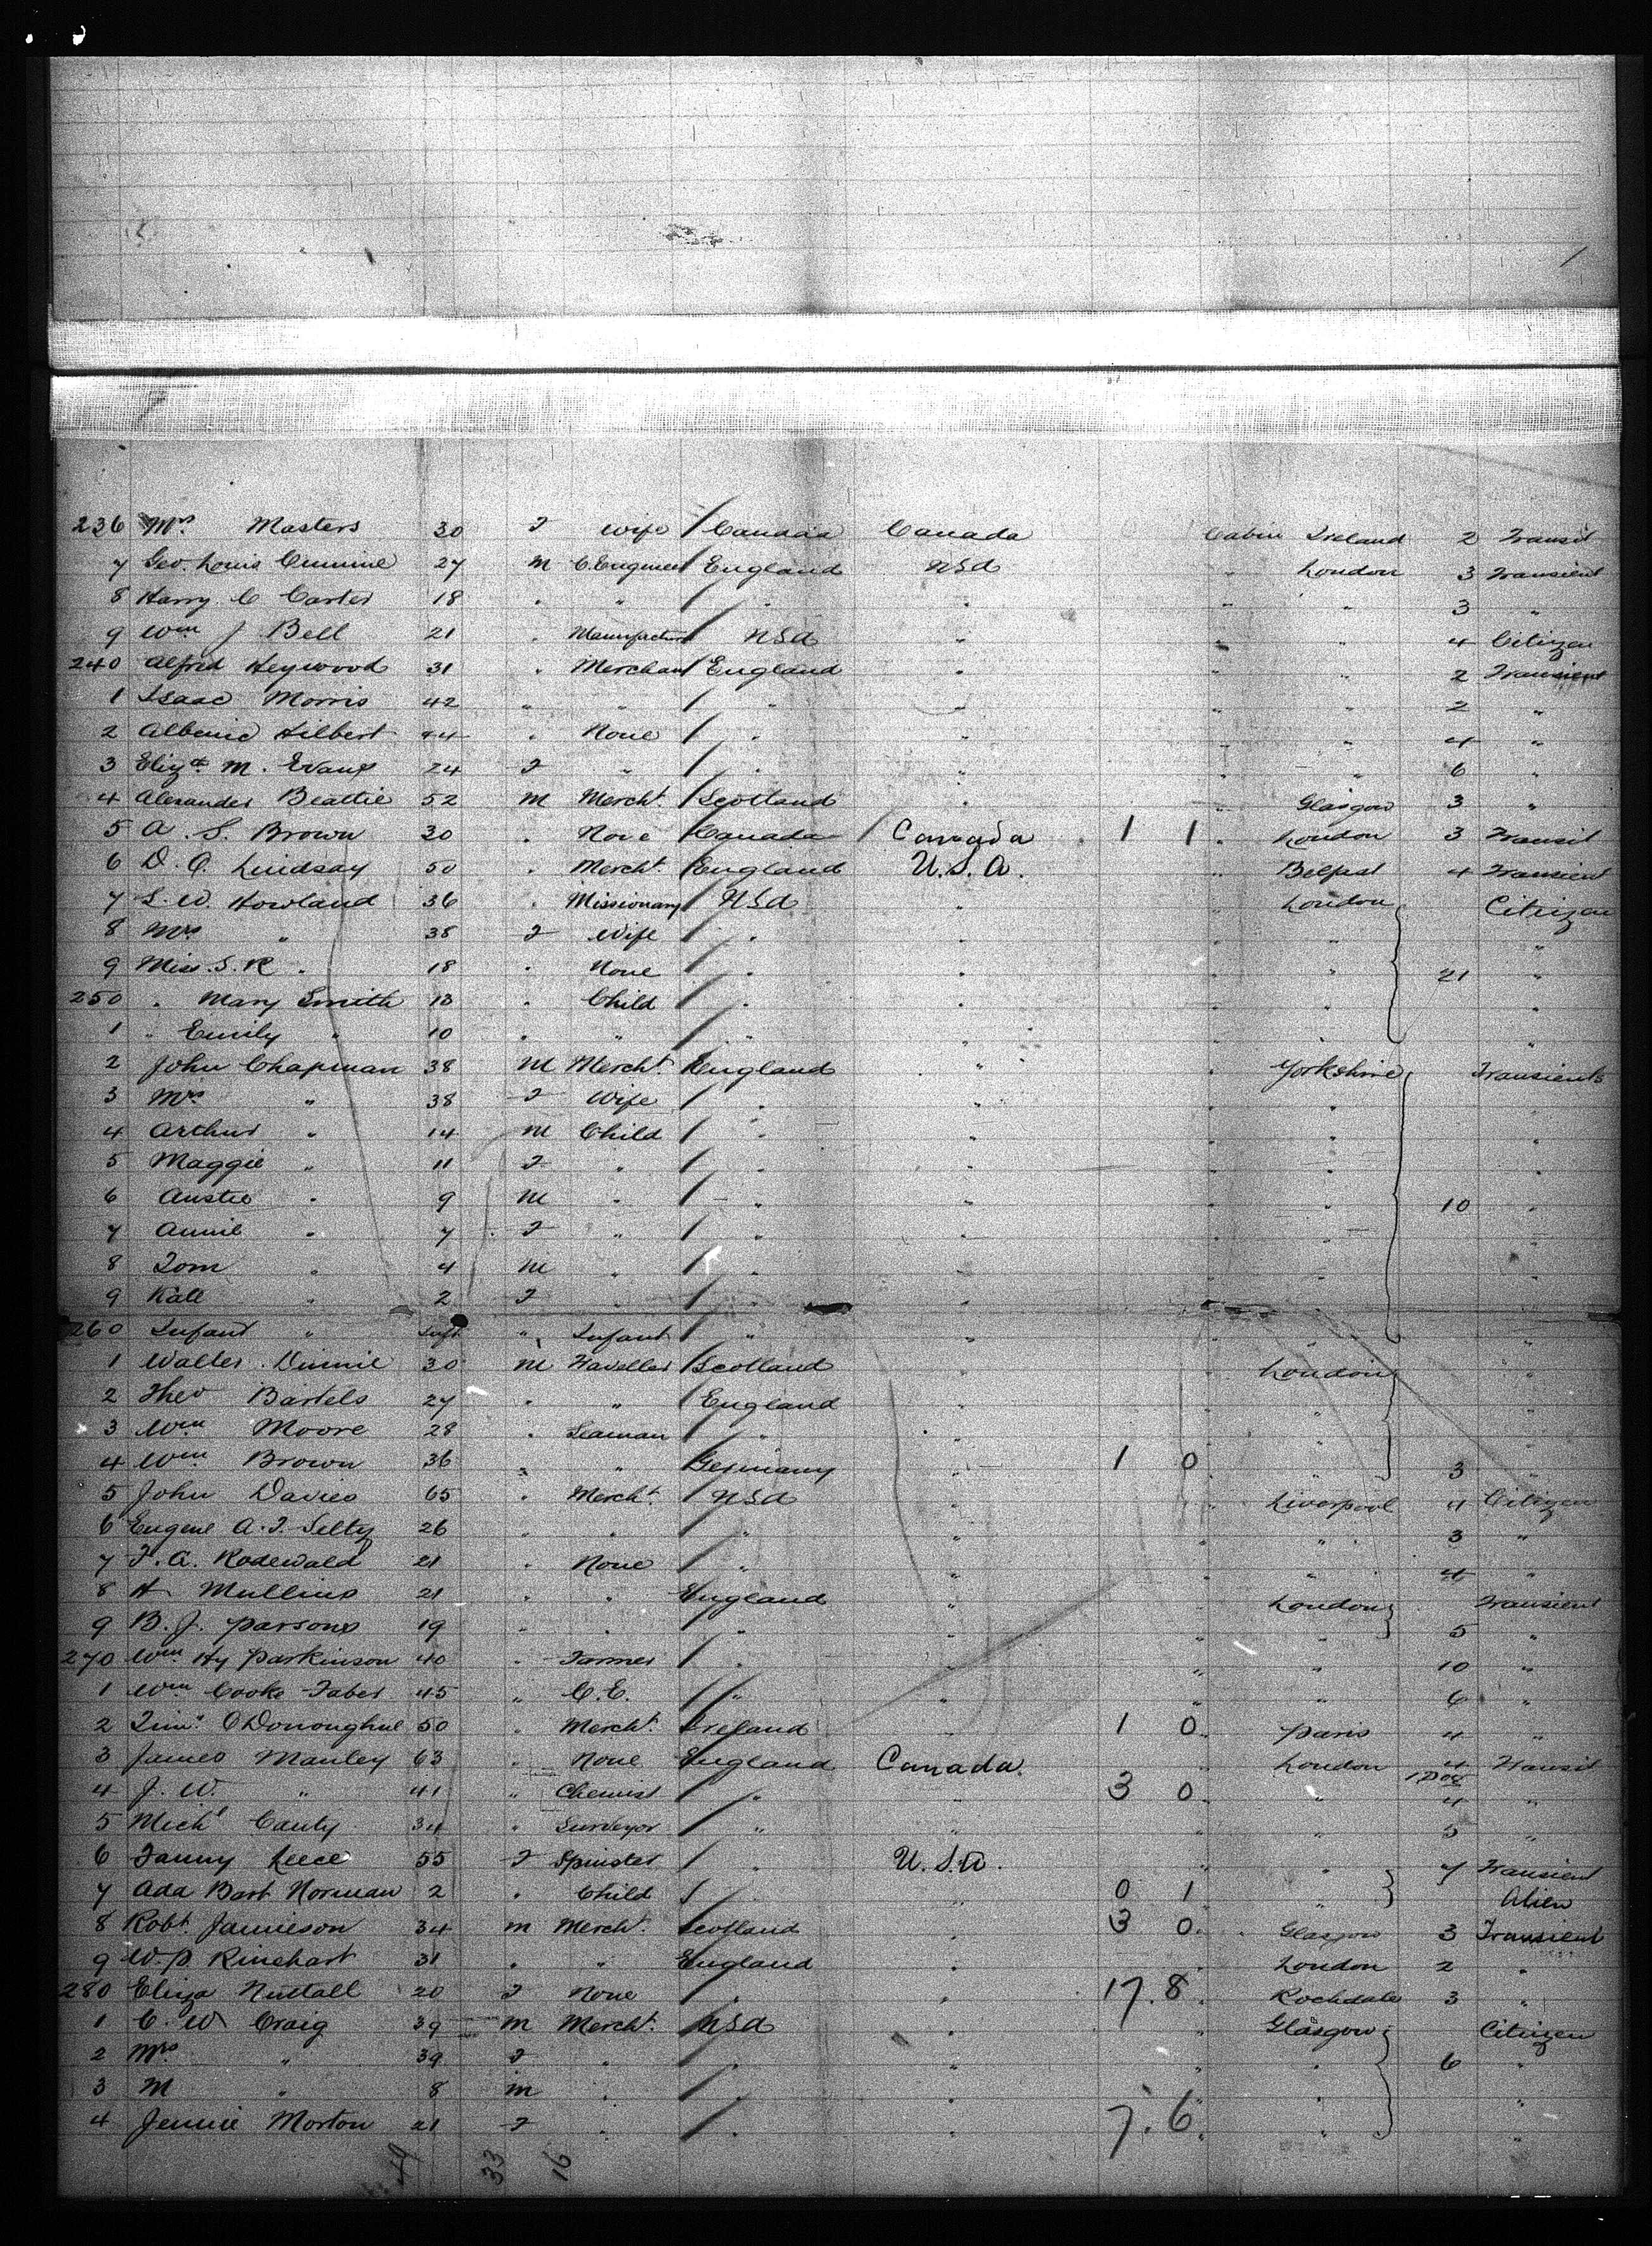 236 Mrs Masters 30 F Wife Canada Canada Cabin Ireland 2 Transit
7 Geo. Louis 27 M C. Engineer England USA " London 3 Transient
8 Harry C Carter 18 " " " " " " 3 "
9 Wm J. Bell 21 " Manufactur USA " " " 4 Citizen
240 Alfred Heywood 31 " Merchant England " " " 2 Transient
1 Isaac Morris 42 " " " " " " 2 "
2 Hilbert 44 " None " " " " 4 "
3 Eliza M. Evans 24 F " " " " " 6 "
4 Alexander Beattie 52 M Mercht. Scotland " " Glasgow 3 "
5 A. S. Brown 30 " None Canada Canada 1 1 " London 3 Transit
6 D. A. Lindsay 50 " Mercht. England U.S.A. " Belfast 4 Transient
7 S. W. Howland 36 " Missionary USA " " London Citizen
8 Mrs " 38 F Wife " " " " "
9 Miss S. R " 18 " None " " " " 21 "
250 " Mary Smith 13 " Child " " " " "
1 " Emily " 10 " " " " " " "
2 John Chapman 38 M Mercht. England " " Yorkshire Transients
3 Mrs " 38 F Wife " " " " "
4 Arthur " 14 M Child " " " " "
5 Maggie " 11 F " " " " " "
6 " 9 M " " " " " 10 "
7 Annie " 7 F " " " " " "
8 Tom " 4 M " " " " " "
9 Kate " 2 F " " " " " "
260 Infant " Inft " Infant " " " " "
1 Walter Dinnie 30 M Traveller Scotland " London "
2 Theo Bartels 27 " " England " " " "
3 Wm Moore 28 " Seaman " " " " "
4 Wm Brown 36 " " Germany " 1 0 " " 3 "
5 John Davies 65 " Mercht. USA " " Liverpool 4 Citizen
6 Eugene A. F. 26 " " " " " " 3 "
7 F. A. Rodewald 21 " None " " " " 4 "
8 H Mullins 21 " " England " " London Transient
9 B. J. Parsons 19 " " " " " " 5 "
270 Wm Hy Parkinson 40 " Farmer " " " " 10 "
1 Wm Cooke Faber 45 " C.E. " " " " 6 "
2 Timy O'Donoghue 50 " Mercht. Ireland " 1 0 " Paris 4 "
3 James Manley 63 " None England Canada " London 4 Transit
4 J. W. " 41 " Chemist " " 3 0 " " 4 "
5 Michl Canty 34 " Surveyor " " " " 5 "
6 Fanny Leece 55 F Spinster " U.S.A. " " 7 Transient
7 Ada Bart Norman 2 " Child " " 0 1 " " Alien
8 Robt Jamieson 34 M Mercht. Scotland " 3 0 " Glasgow 3 Transient
9 W. P. Rinehart 31 " " England " " London 2 "
280 Eliza Nuttall 20 F None " " 17.8 " Rochdale 3 "
1 C. W Craig 39 M Mercht. USA " " Glasgow Citizen
2 Mrs " 39 F " " " " " 6 "
3 M " 8 M " " " " " "
4 Jennie Morton 21 F " " " 7.6 " " "
49 33 16